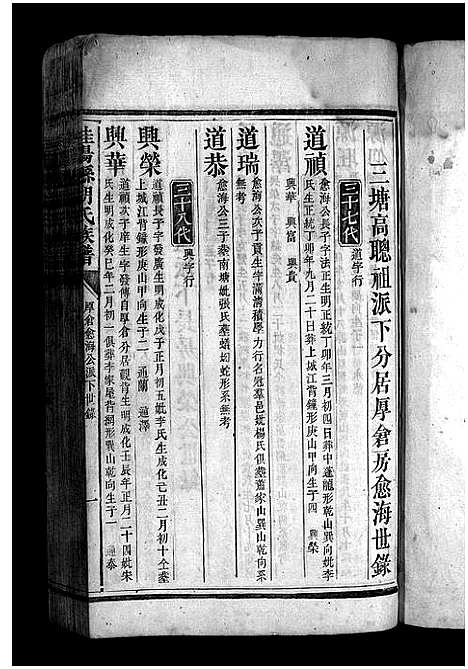 三塘高聰祖派下分居厚倉房愈海世錄
三十七代 道字行
道禎 愈海公長子字法正生明正統丁卯年三月初四日葬中蓬龍形乾山巽向妣李
氏生正統丁卯年九月二十日葬上城江背鐘形庚山甲向生子四 興榮
興華 興富 興貴
道瑞 愈海公次子貢生字滿清積學力行名冠羣邑妣楊氏俱葬蕭家山巽山乾向系
無考
道恭 愈海公三子葬南塘妣張氏葬蟠蚓蛇形系無考
三十八代 興字行
興榮 道禎長子字發廣生明成化戊子正月初五妣李氏生成化己丑二月初十仝葬
上城江背鐘形庚山甲向生子二 通蘭 通澤
興華 道禎次子庠生字發傳自厚倉分居觀背生明成化壬辰年正月二十四妣朱
氏生明成化癸巳年二月初一俱葬李家尾背獅形戰山乾向生子一 通泰
桂陽縣胡氏族譜
厚倉愈海公派下世錄
一